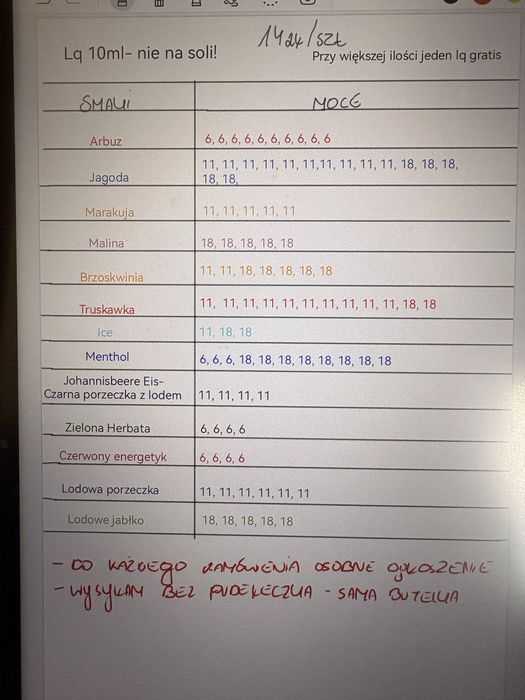 14zł/szt
Lq 10ml- nie na soli!
Przy większej ilości jeden lq gratis
SMAKI MOCE
Arbuz 6, 6, 6, 6, 6, 6, 6, 6, 6, 6
Jagoda 11, 11, 11, 11, 11, 11,11, 11, 11, 11, 18, 18, 18,
18, 18,
Marakuja 11, 11, 11, 11, 11
Malina 18, 18, 18, 18, 18
Brzoskwinia 11, 11, 18, 18, 18, 18, 18
Truskawka 11, 11, 11, 11, 11, 11, 11, 11, 11, 11, 18, 18
Ice 11, 18, 18
Menthol 6, 6, 6, 18, 18, 18, 18, 18, 18, 18, 18
Johannisbeere Eis-
Czarna porzeczka z lodem 11, 11, 11, 11
Zielona Herbata 6, 6, 6, 6
Czerwony energetyk 6, 6, 6, 6
Lodowa porzeczka 11, 11, 11, 11, 11, 11
Lodowe jabłko 18, 18, 18, 18, 18
- DO KAŻDEGO ZAMÓWIENIA OSOBNE OGŁOSZENIE
- WYSYŁAM BEZ PUDEŁECZKA - SAMA BUTELKA